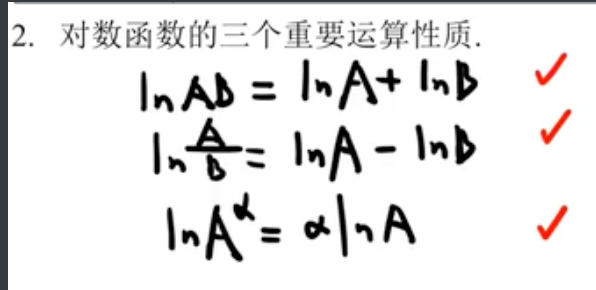 2. 对数函数的三个重要运算性质.
ln AB = ln A + ln B ✓
ln A/B = ln A - ln B ✓
ln A^α = α ln A ✓